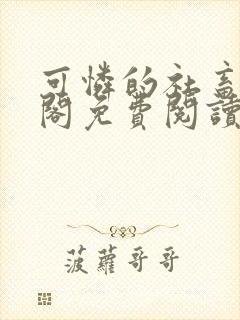 可憐的社畜
閣免費閱讀
菠蘿哥哥